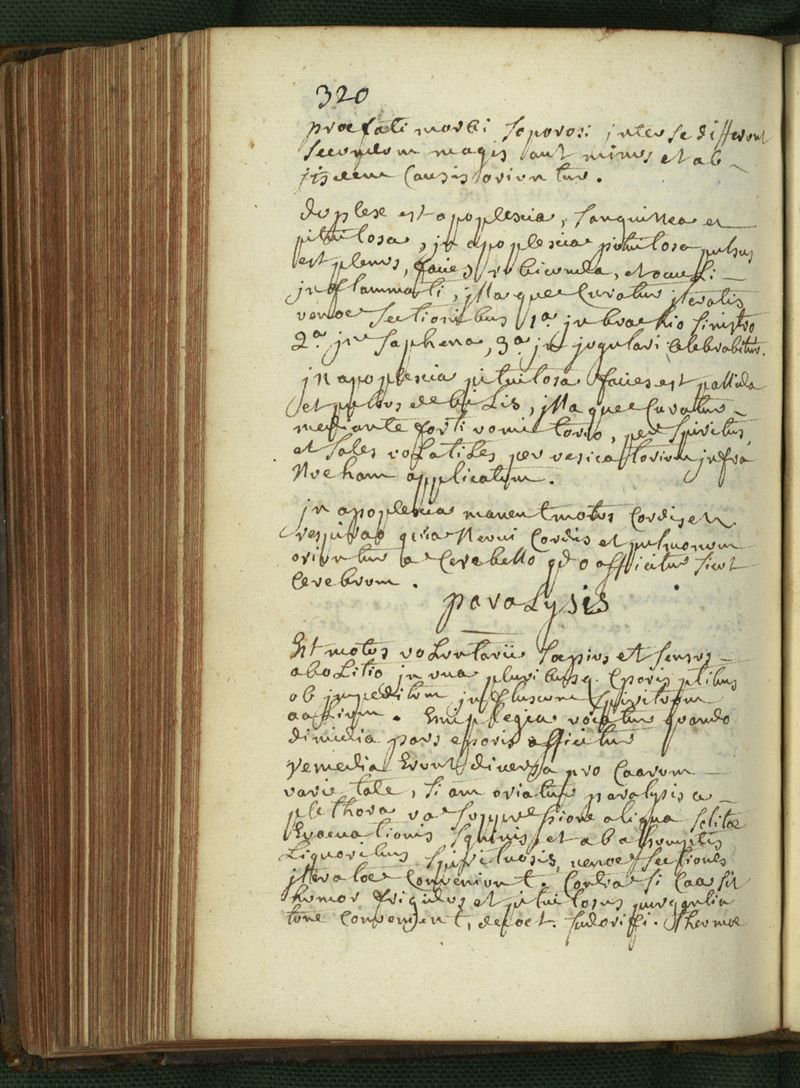 320
proefati morbi soporosi inter se differunt
secundum magis aut minus et ab
jisdem causis oriuntur.
duplex est apoplexia, sanguinea et
pituitosa, in apoplexia pituitosa pulsus
est plenus, facies rubicunda, et oculi
inflammati, illa que curatur iteratis
venoe sectionibus 1a. in brachio sinistro
2.a in saphena, 3.a in jugulari celebrabitur.
in apoplexia pituitosa facies est pallida
et pulsus debilis, illa que curatur
mediante forti vomitorio, per spiritus,
et sales volatiles per vesicatorium infra
nucham applicatum.
in apoplexia manent motus cordis et
respirao quia nervi cordis et pulmonum
oriuntur a cerebello qd o afficitur sicut
cerebrum.
paralysis
Est motus voluntarii soepius et sensus
abolitio in una pluribusq. cporis ptibus
ob impeditum influxum spirituum
aalium. Emiplegia vocatur quando
dimidia pars cporis afficitur
remedia erunt diversa pro caarum
varietate, si am oriatur paralysis a
plethora va suppressione aliqua solitoe
evacuationis sguinis, et ab a
liquoribus spirituosis, venoe sectiones
iteratoe conveniunt. Contra si caa sit
humor frigidus et pituitosus purgantia
tone conveniunt, decoct. sudoriffi. thermoe